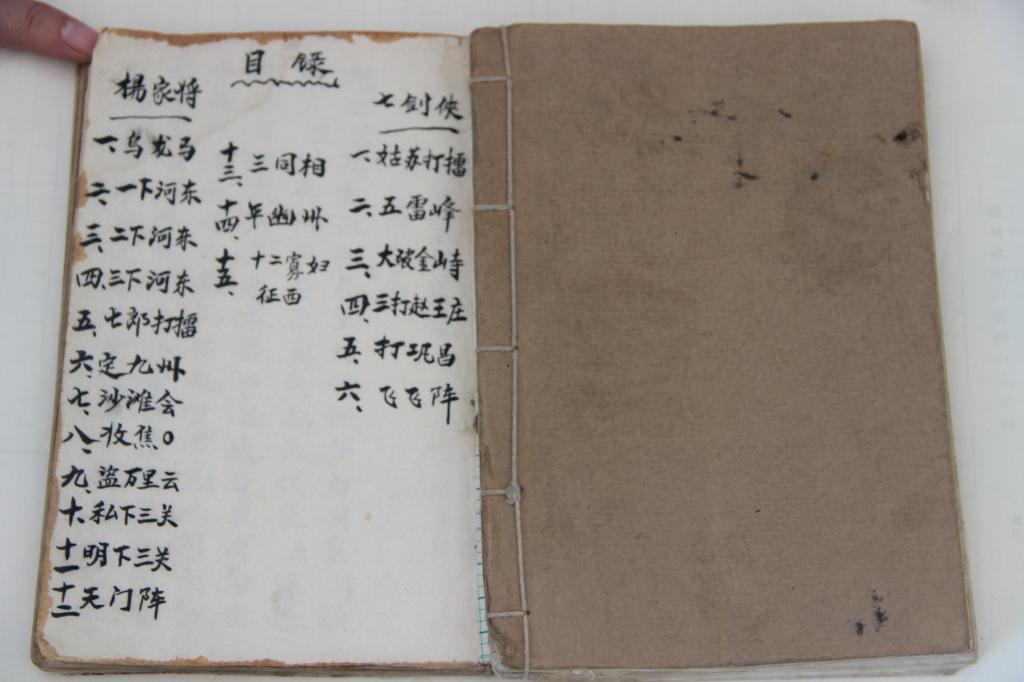 目录
杨家将
一、乌龙马
二、一下河东
三、二下河东
四、三下河东
五、七郎打擂
六、定九州
七、沙滩会
八、收焦〇
九、盗万里云
十、私下三关
十一明下三关
十二天门阵
十三、三同相
十四、年幽州
十五、十二寡妇
征西
七剑侠
一、姑苏打擂
二、五雷峰
三、大破金山寺
四、三打赵王庄
五、打巩昌
六、飞飞阵